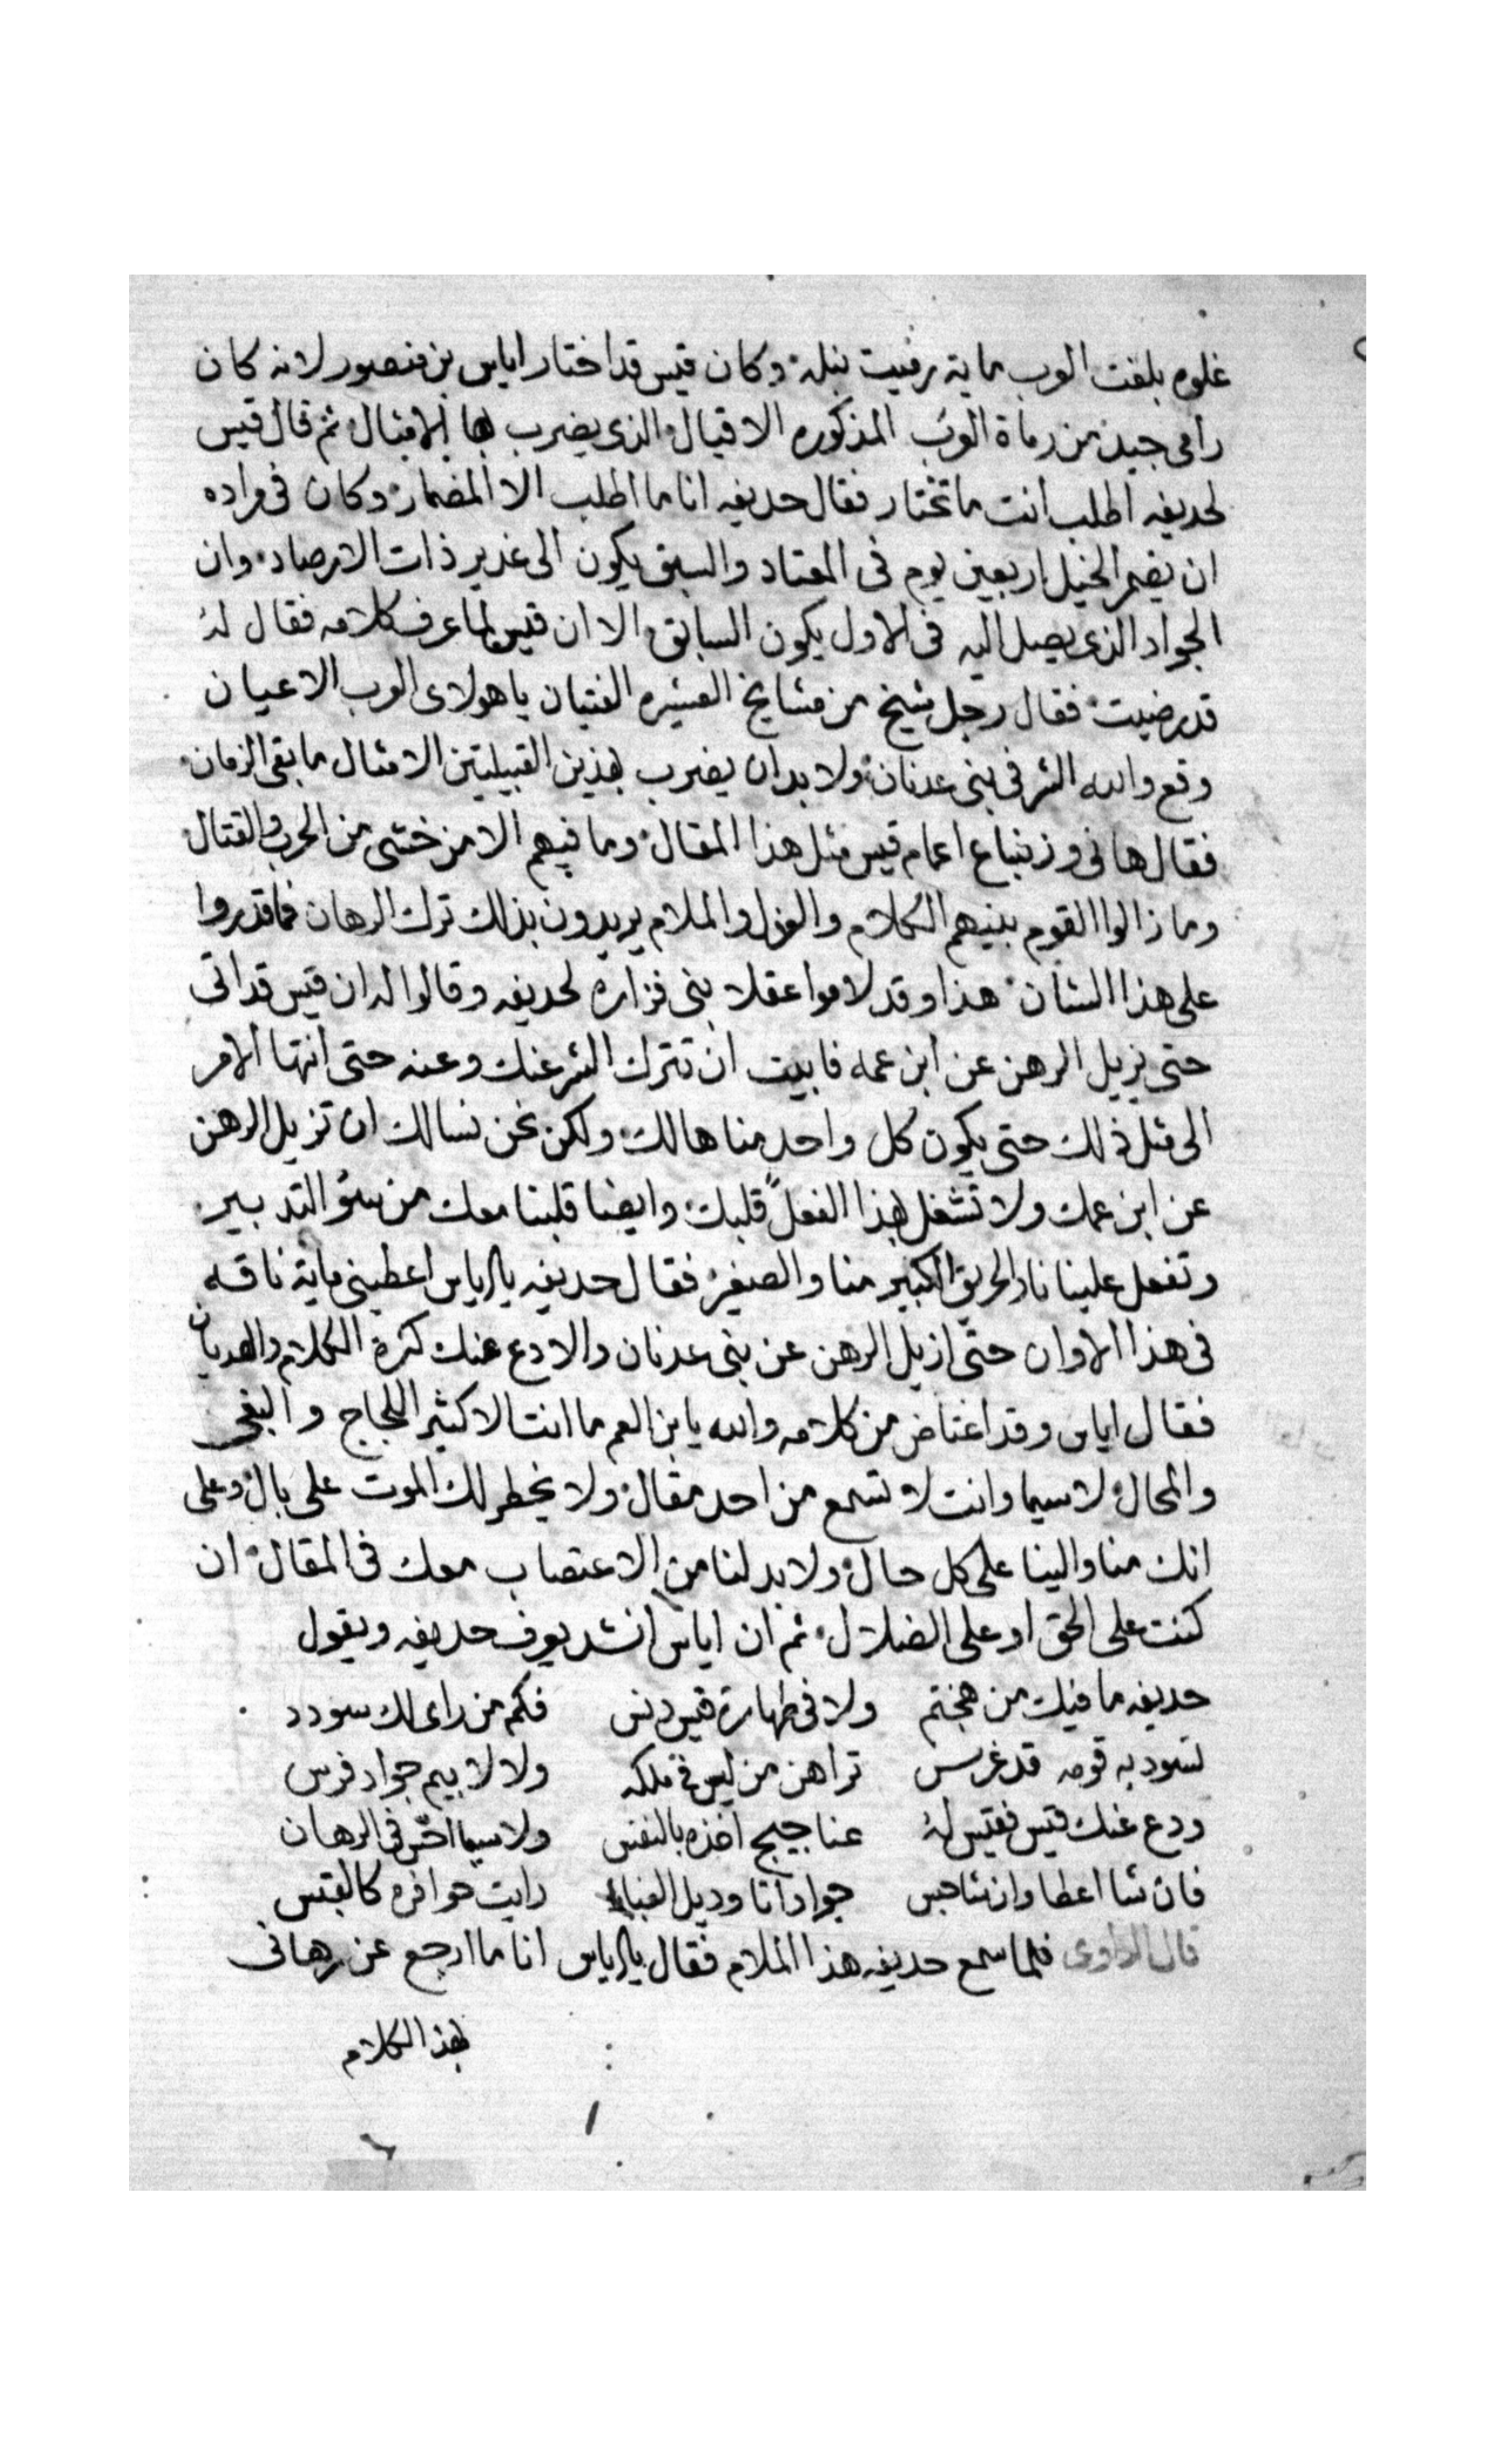 غلوه بلغت العرب مماية رميت نبله وكان قيس قد اختار اياس بن منصور لانه كان
رامى جيد من رماة العرب المذكوره الاقيال الذى يضرب بها الامثال ثم قال قيس
لحديفه اطلب انت ما تختار فقال حديفه انا ما اطلب الا المضمار وكان فى مراده
ان يضمر الخيل اربعين يوم فى المعتاد والسبق يكون الى غدير ذات الارصاد وان
الجواد الذى يصل اليه فى الاول يكون السابق الا ان قيس لما عرف كلامه فقال له
قد رضيت فقال رجل شيخ من مشايخ العشيره الفتيان يا هولاى العرب الاعيان
وقع والله الشر فى بنى عدنان ولا بد ان يضرب بهذين القبيلتين الامثال ما بقى الزمان
فقال هانى وزنباع اعمام قيس مثل هذا المقال وما فيهم الا من خشى من الحرب والقتال
وما زالوا القوم بينهم الكلام والعزل والملام يريدون بذلك ترك الرهان فما قدروا
على هذا الشان هذا وقد لاموا عقلا بنى فزاره لحديفه وقالوا له ان قيس قد اتى
حتى يزيل الرهن عن ابن عمه فابيت ان تترك الشر عنك وعنه حتى انتها الامر
الى مثل ذلك حتى يكون كل واحد منا هالك ولكن نحن نسالك ان تزيل الرهن
عن ابن عمك ولا تشغل بهذا الفعل قلبك وايضا قلبنا معك من سؤ التدبير
وتفعل علينا نار الحريق الكبير منا والصغير فقال حديفه يا اياس اعطينى ماية ناقه
فى هذا الاوان حتى ازيل الرهن عن بنى عدنان والا دع عنك كثرة الكلام والهديان
فقال اياس وقد اغتاض من كلامه والله يا بن العم ما انت الا كثير اللجاج والبغى
والمحال لا سيما وانت لا تسمع من احد مقال ولا يخطر لك الموت على بال وعلى
انك منا والينا على كل حال ولا بد لنا من الاعتصاب معك فى المقال ان
كنت على الحق او على الضلال ثم ان اياس انشد يعرف حديفه ويقول
حديفه ما فيك من هجنتم ولا فى طهارة قيس دنس فكم من راى لك سودد
تسود به قومه قد غرس تراهن من ليس فى ملكه ولا لابيه جواد فرس
ودع عنك قيس فقيس له عناجيج اخذه بالنفس ولا سيما اخر فى الرهان
فان شا اعطا وان شا حبس جواد اتا وديل الغبار رايت حوافره كالقبس
قال الراوى فلما سمع حديفه هذا الملام فقال يا اياس انا ما ارجع عن رهانى
بهذا الكلام